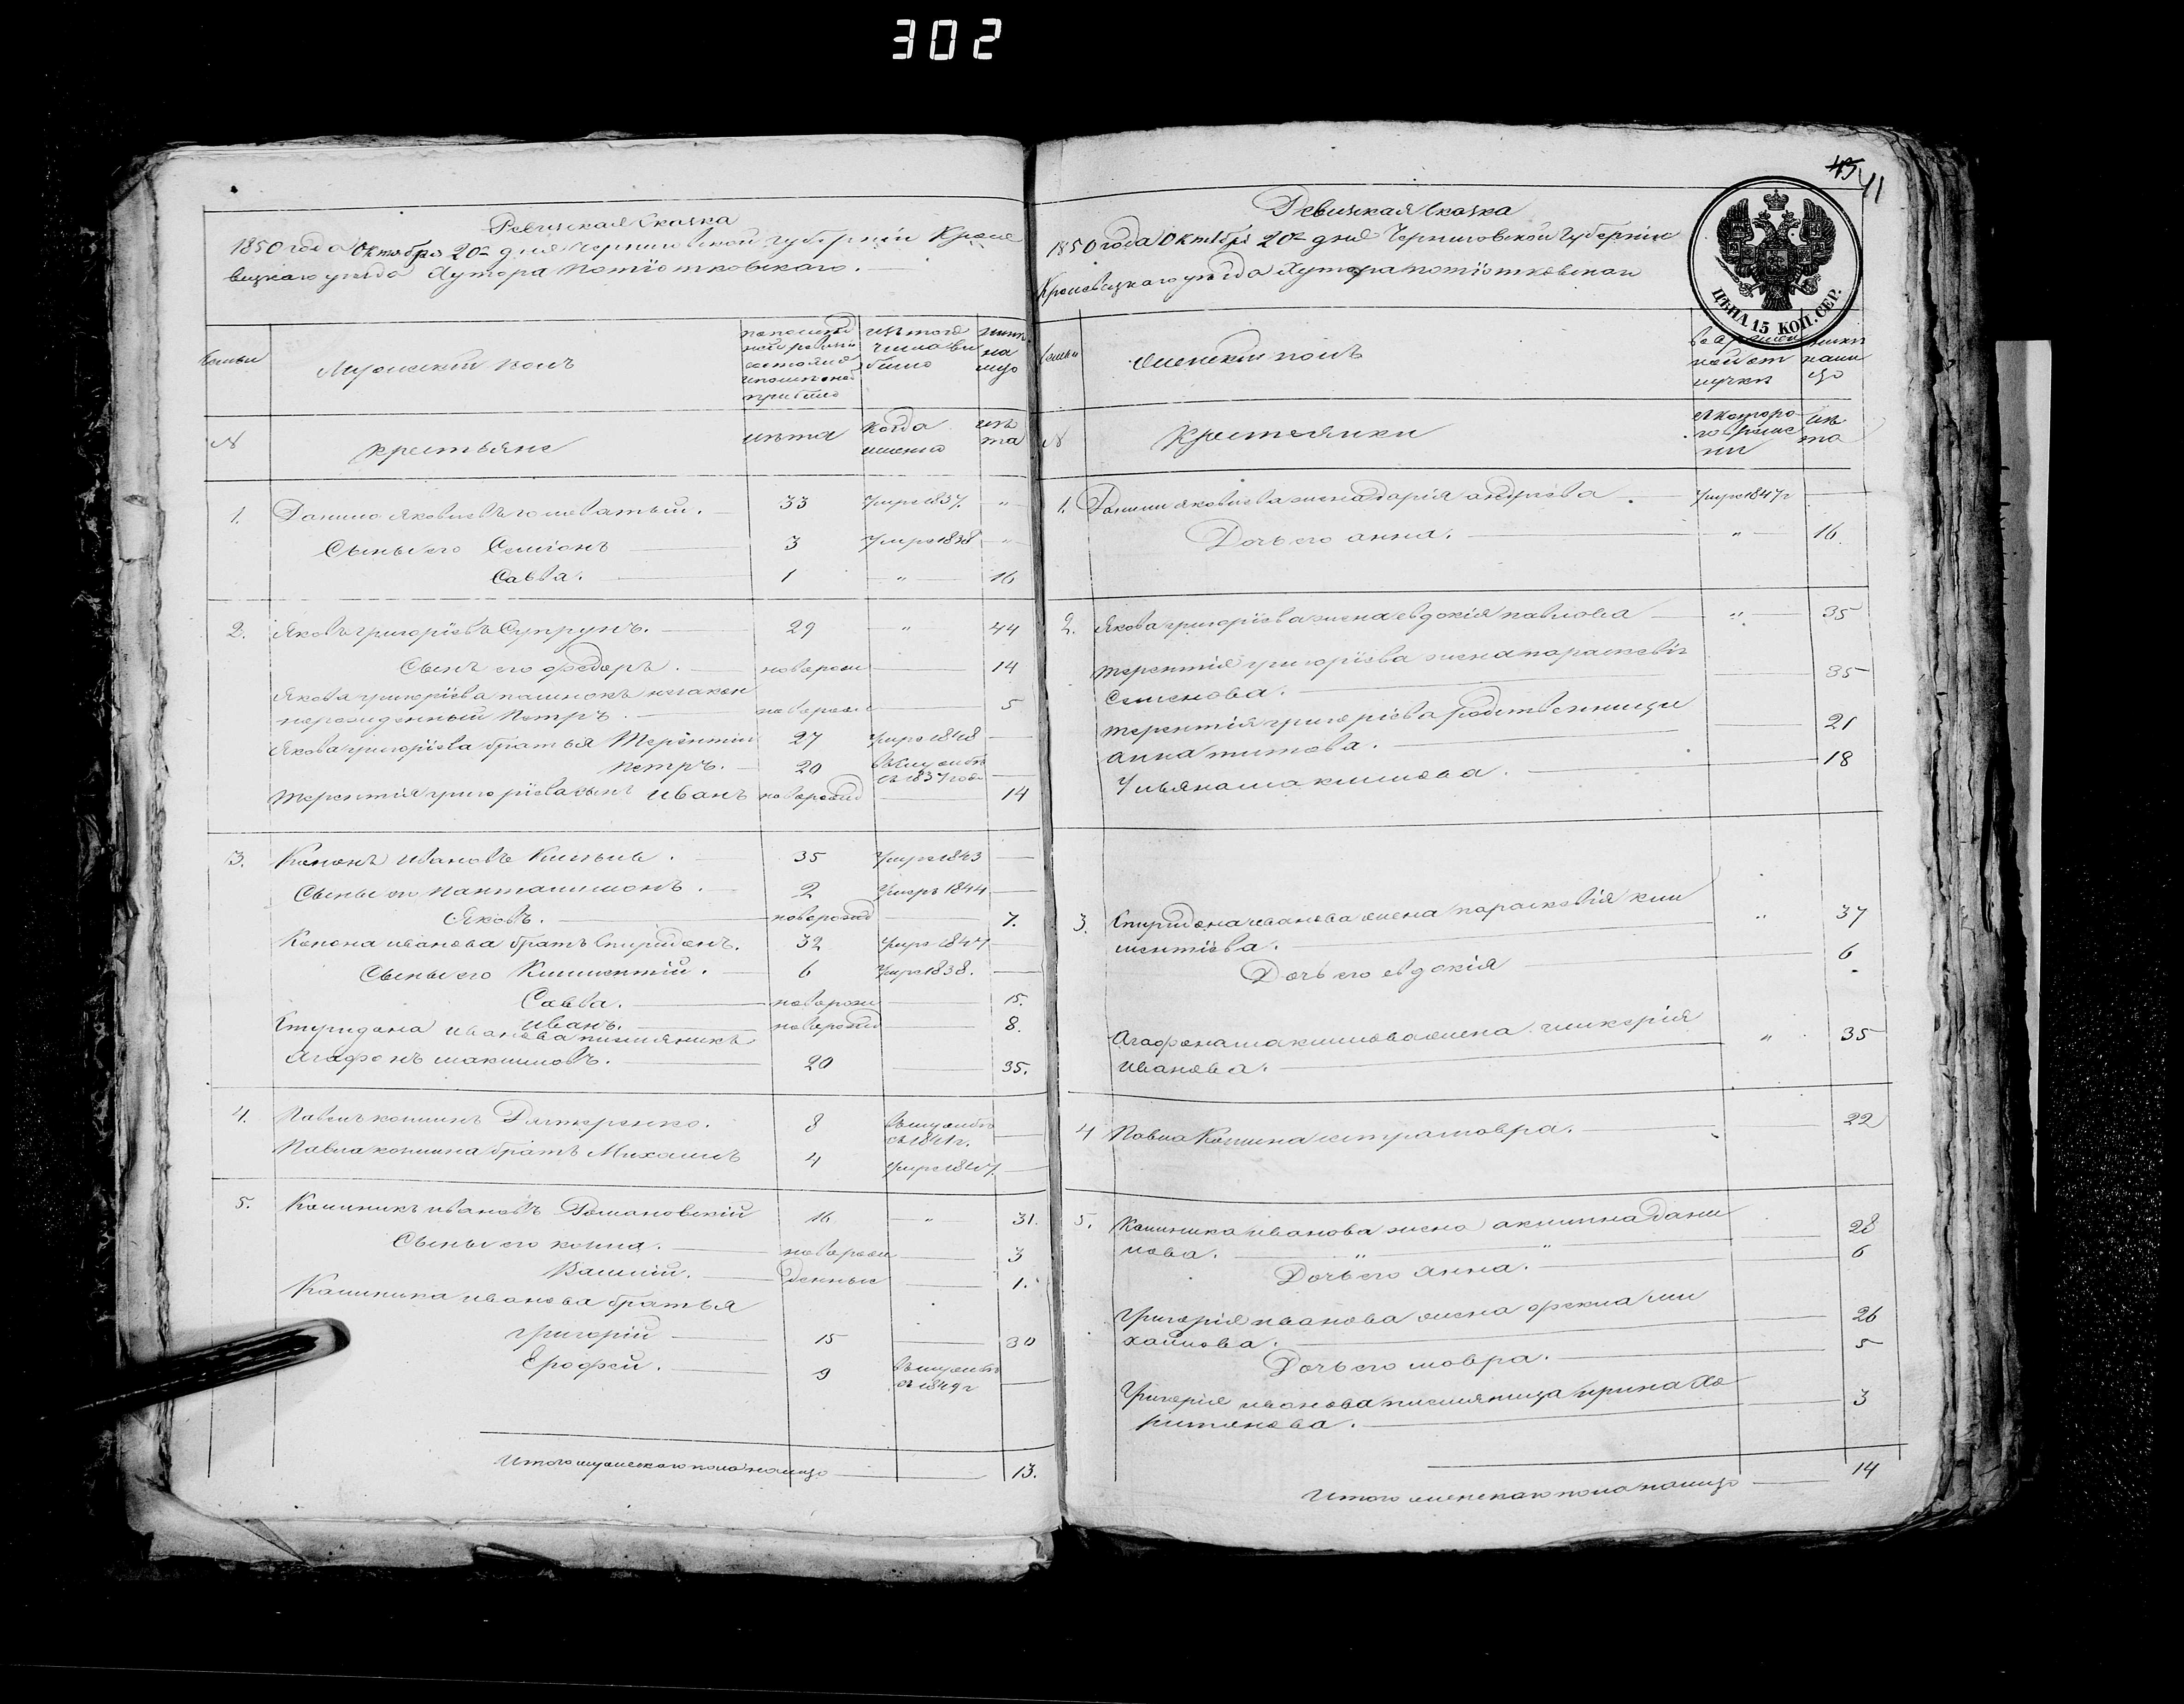 302
Ревизская Сказка
1850 года Октября 20го дня Черниговской Губернии Кроле
вецкаго уезда Хутора Потїотковскаго.
Семьи
Мужеский полъ
изъ того
числа вы
было
на
лицо
№
крестьяне
лѣта
Когда
именно
лѣ
та
1. Данило Яковлевъ головатый. 33 Умре 1837. "
Сыны его Семіонъ 3 Умре 1838 "
Савва. 1 " 16
2. Яковъ григоріевъ Супрунъ. 29 " 44
Сынъ его федоръ. новорож 14
Якова григоріева незакон
норожденный Петръ. новорож 5
Якова григоріева братья Терентій 27 Умре 1848
Петръ. 20
съ 1837 года
Терентія григоріева сынъ иванъ новорожд 14
3. Кононъ ивановъ 35 Умре 1843
Сыны его пантелимонъ. 2 Умеръ 1844
Яковъ. новорожд 7.
Конона иванова братъ Спиридонъ. 32 Умре 1847
Сыны его Климентій. 6 Умре 1838.
Савва. новорож 15.
иванъ. новорожд 8.
Спиридона иванова племяникъ
Агафонъ максимовъ. 20 35.
4. Павелъ 8
съ 1841 г.
Павла братъ Михаилъ 4 Умре 1847
5. Калиникъ ивановъ Романовскій 16 " 31.
Сыны его новорож 3
Василій. денные 1.
Калиника иванова братья
григорій 15 30
Ерофей. 9
съ 1849 г
Итого мужескаго пола налицо 13.
45 41
Ревизская Сказка
1850 года Октября 20го дня Черниговской Губерніи
Кролевецкаго уезда Хутора потїотковскаго
ЦѢНА 15 КОП. СЕР.
Семьи
Женский полъ
№
Крестьянки
лѣ
та
1. Данилы яковлева жена дарія андріева. Умре 1847 г
Дочь его анна. " 16.
2. Якова григоріева жена евдокія павлова " 35
Терентія григоріева жена параскевія
Семенова. 35
терентія григоріева родственницы
анна титова. 21
Ульяна максимова. 18
3. Спиридона иванова жена параскевія кли
ментіева. " 37
Дочь его евдокія 6
Агафона максимова жена гликерія
иванова. " 35
4 Павла сестра мовра. 22
5. Калиника иванова жена акилина дани
лова. " " 28
Дочь его анна. 6
Григорія иванова жена фекла ми
хайлова. 26
Дочь его мовра. 5
Григорія иванова племяница ирина ха
ритонова. 3
Итого женскаго пола налицо 14